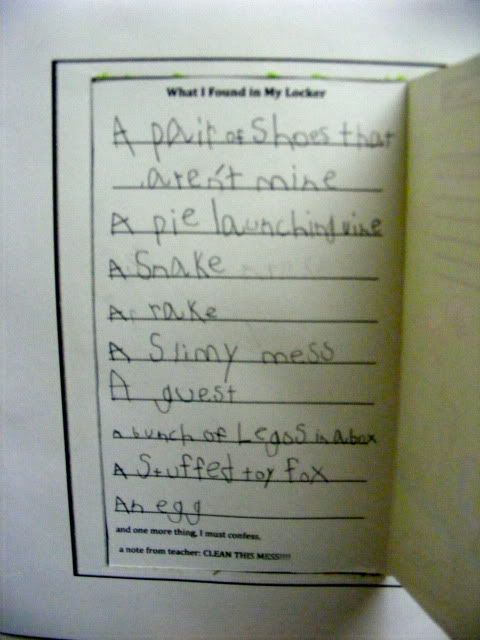 What I Found in My Locker
A pair of shoes that
aren't mine
A pie launching vine
A Snake
A rake
A Slimy mess
A guest
A bunch of Legos in a box
A Stuffed toy fox
An egg
and one more thing, I must confess,
a note from teacher: CLEAN THIS MESS!!!!